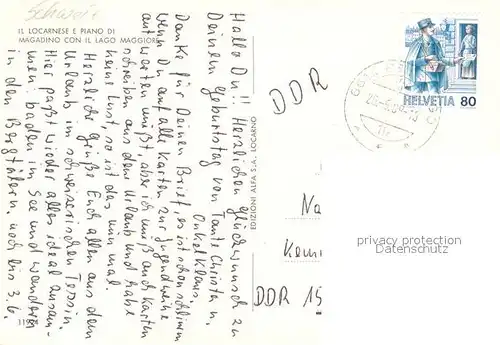 Schweiz
IL LOCARNESE E PIANO DI
MAGADINO CON IL LAGO MAGGIORE
Hallo Du!! Herzlichen Glückwunsch zu
Deinem Geburtstag von Tante Christa u.
Onkel Klaus.
Danke für Deinen Brief, es ist schon schlimm
wenn Du auf alle Karten zur Jugendweihe
antworten mußt, aber ich muß auch Karten
schreiben aus dem Urlaub und habe
keine Lust, so ist das nun mal.
Herzliche Grüße Euch allen aus dem
Urlaub im schweizerischen Tessin.
Hier paßt wieder alles ideal zusam-
men: baden im See und wandern
in den Bergtälern. noch bis 3.6.
EDIZIONI ALFA S.A. LOCARNO
DDR
Na
DDR 15
HELVETIA 80
privacy protection
Datenschutz